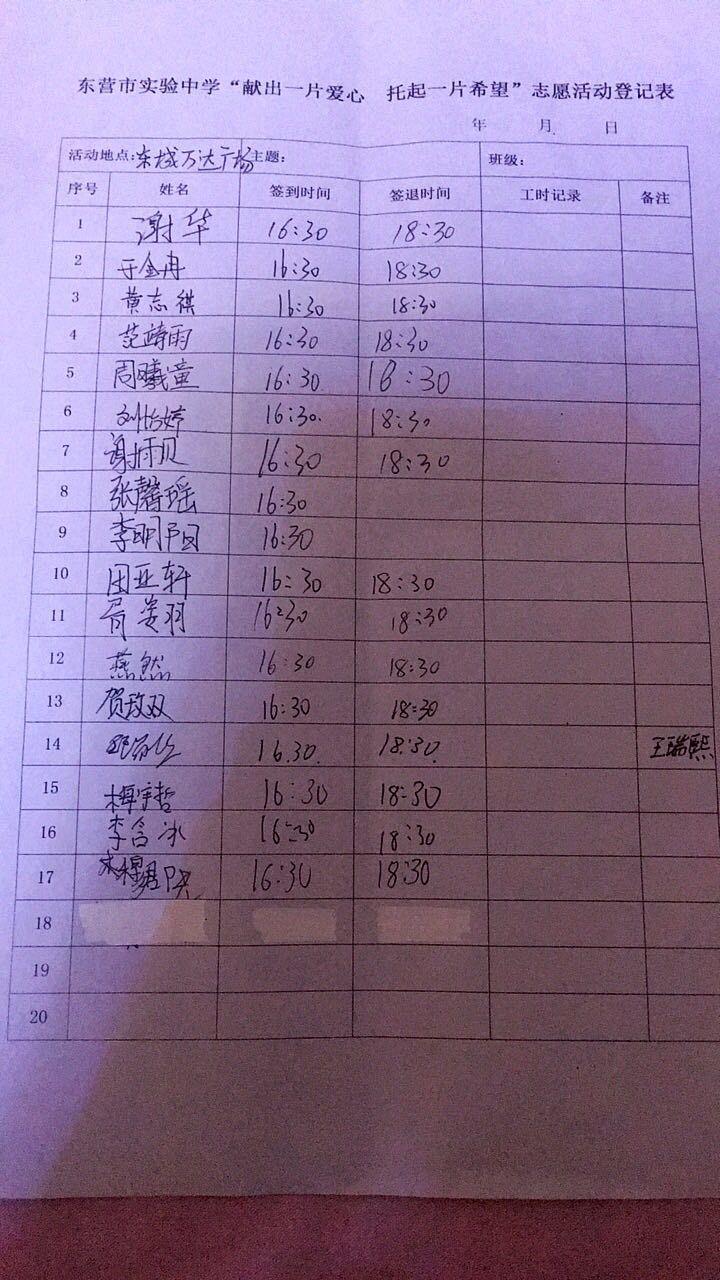 东营市实验中学“献出一片爱心 托起一片希望”志愿活动登记表
年 月 日
活动地点:东城万达广场 主题: 班级:
序号 姓名 签到时间 签退时间 工时记录 备注
1 谢华 16:30 18:30
2 于金冉 16:30 18:30
3 黄志祺 16:30 18:30
4 范靖雨 16:30 18:30
5 周曦童 16:30 18:30
6 刘怡婷 16:30. 18:30
7 谢雨贝 16:30 18:30
8 张馨瑶 16:30
9 李明阳 16:30
10 田亚轩 16:30 18:30
11 胥姿羽 16:30 18:30
12 燕然 16:30 18:30
13 贺政双 16:30 18:30
14 16.30. 18:30.
15 梅宇哲 16:30 18:30
16 李含冰 16:30 18:30
17 16:30 18:30
18
19
20